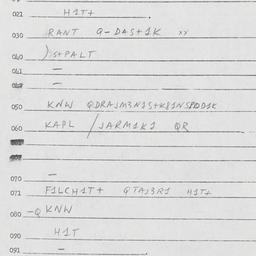 021 H1T+
030 RANT Q-DAS+1K xy
040 )S+PALT
041 —
—
050 KNW QDRAJM3N1S+K81NSPDD1K
060 KAPL /JARM1K1 QR
070 —
071 F1LCH1T+ QTAJ3R1 H1T+
080 -Q KNW
090 H1T
091 —